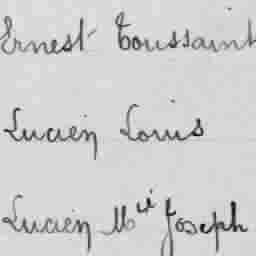 Ernest Toussaint
Lucien Louis
Lucien Mie Joseph